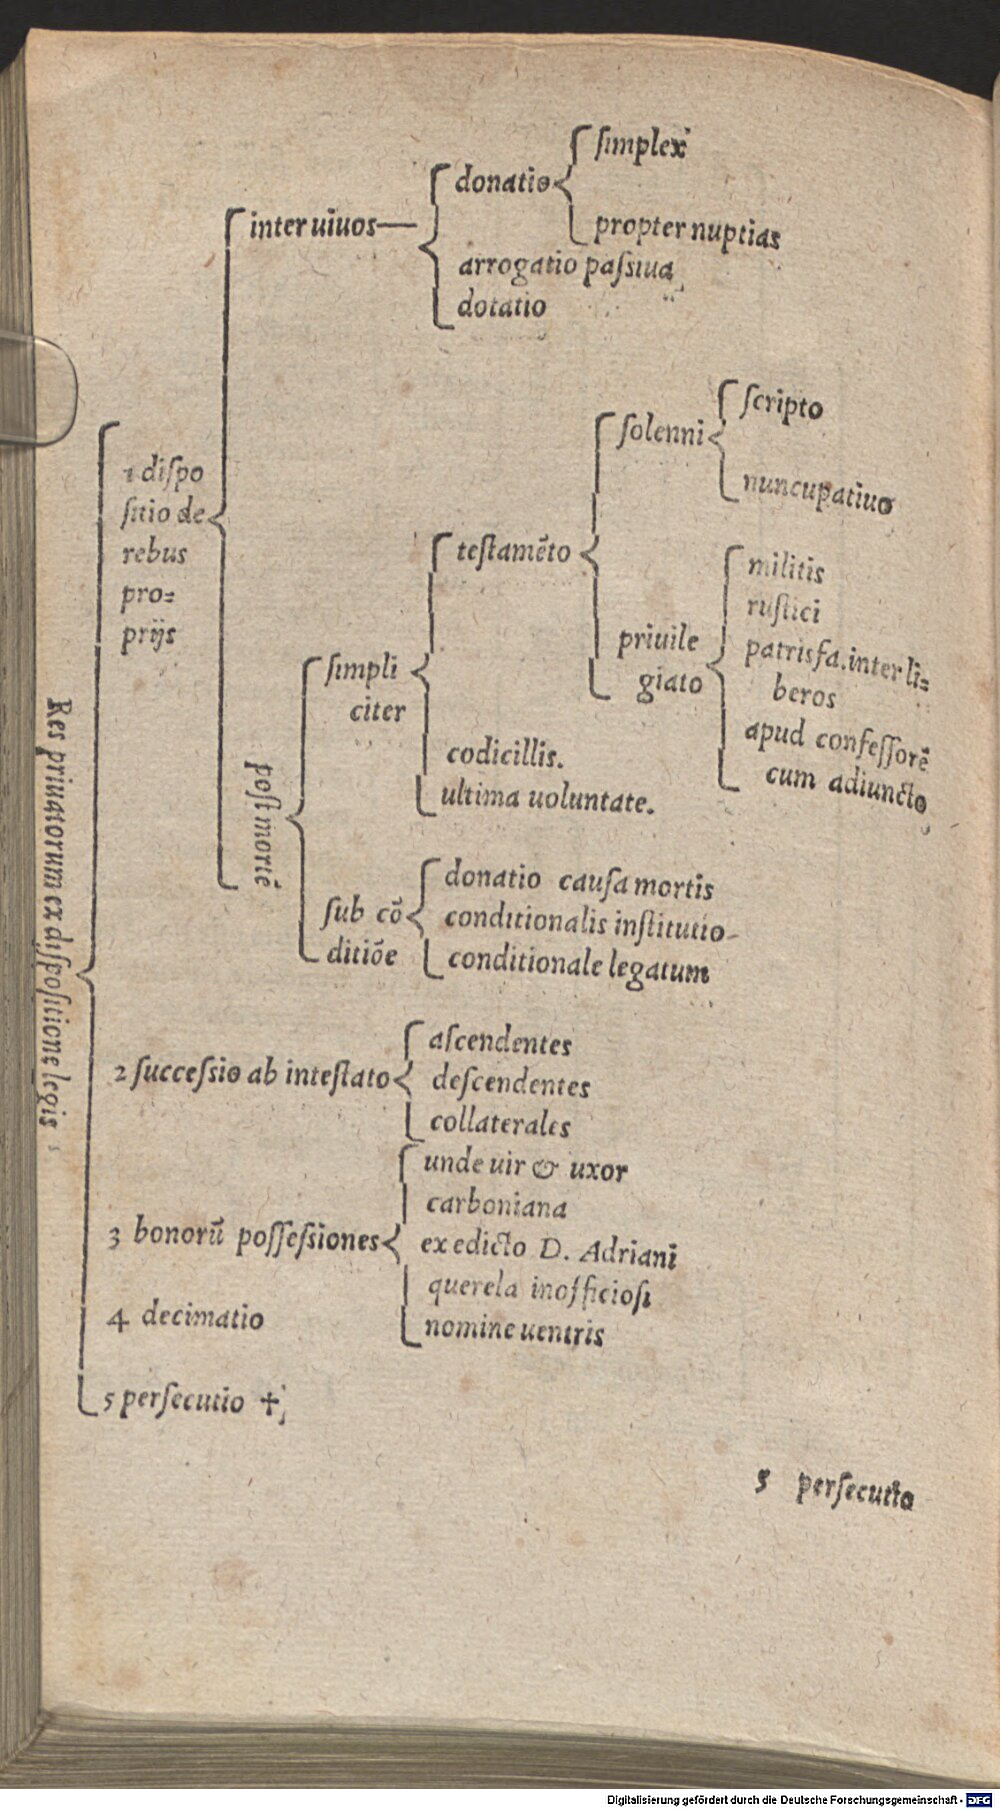 Res priuatorum ex dispositione legis
1 dispo
sitio de
rebus
pro=
prijs
inter uiuos
donatio
simplex
propter nuptias
arrogatio passiua
dotatio
post mortē
simpli
citer
testamēto
solenni
scripto
nuncupatiuo
priuile
giato
militis
rustici
patrisfa. inter li=
beros
apud confessorē
cum adiuncto
codicillis.
ultima uoluntate.
sub cō
ditiōe
donatio causa mortis
conditionalis institutio
conditionale legatum
2 successio ab intestato
ascendentes
descendentes
collaterales
3 bonorū possessiones
unde uir & uxor
carboniana
ex edicto D. Adriani
querela inofficiosi
nomine uentris
4 decimatio
5 persecutio ✝
5 persecutio
Digitalisierung gefördert durch die Deutsche Forschungsgemeinschaft - DFG